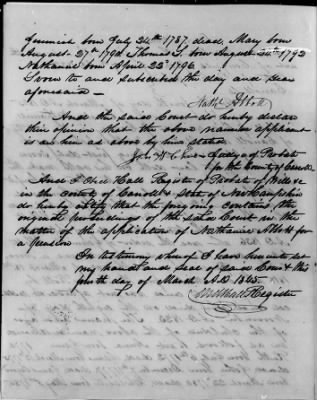 Jeremiah born July 24th 1787 dead, Mary born
August 27th 1790 Thomas S born August 24th 1792
Nathaniel born April 23d 1796
Sworn to and subscribed the day and year
aforesaid —
Nathl Abbott
And the said Court do hereby declare
their opinion that the above named applicant
is as him as above by him stated
Judge of Probate
for the County of Carroll
And I Obed Hall Register of Probate of Wills &c
in the County of Carroll & State of New Hampshire
do hereby certify that the foregoing contains the
original proceedings of the said Court in the
matter of the application of Nathaniel Abbott for
a pension
In testimony whereof I have hereunto set
my hand and seal of said Court this
fourth day of March A.D. 1845
Obed Hall Register